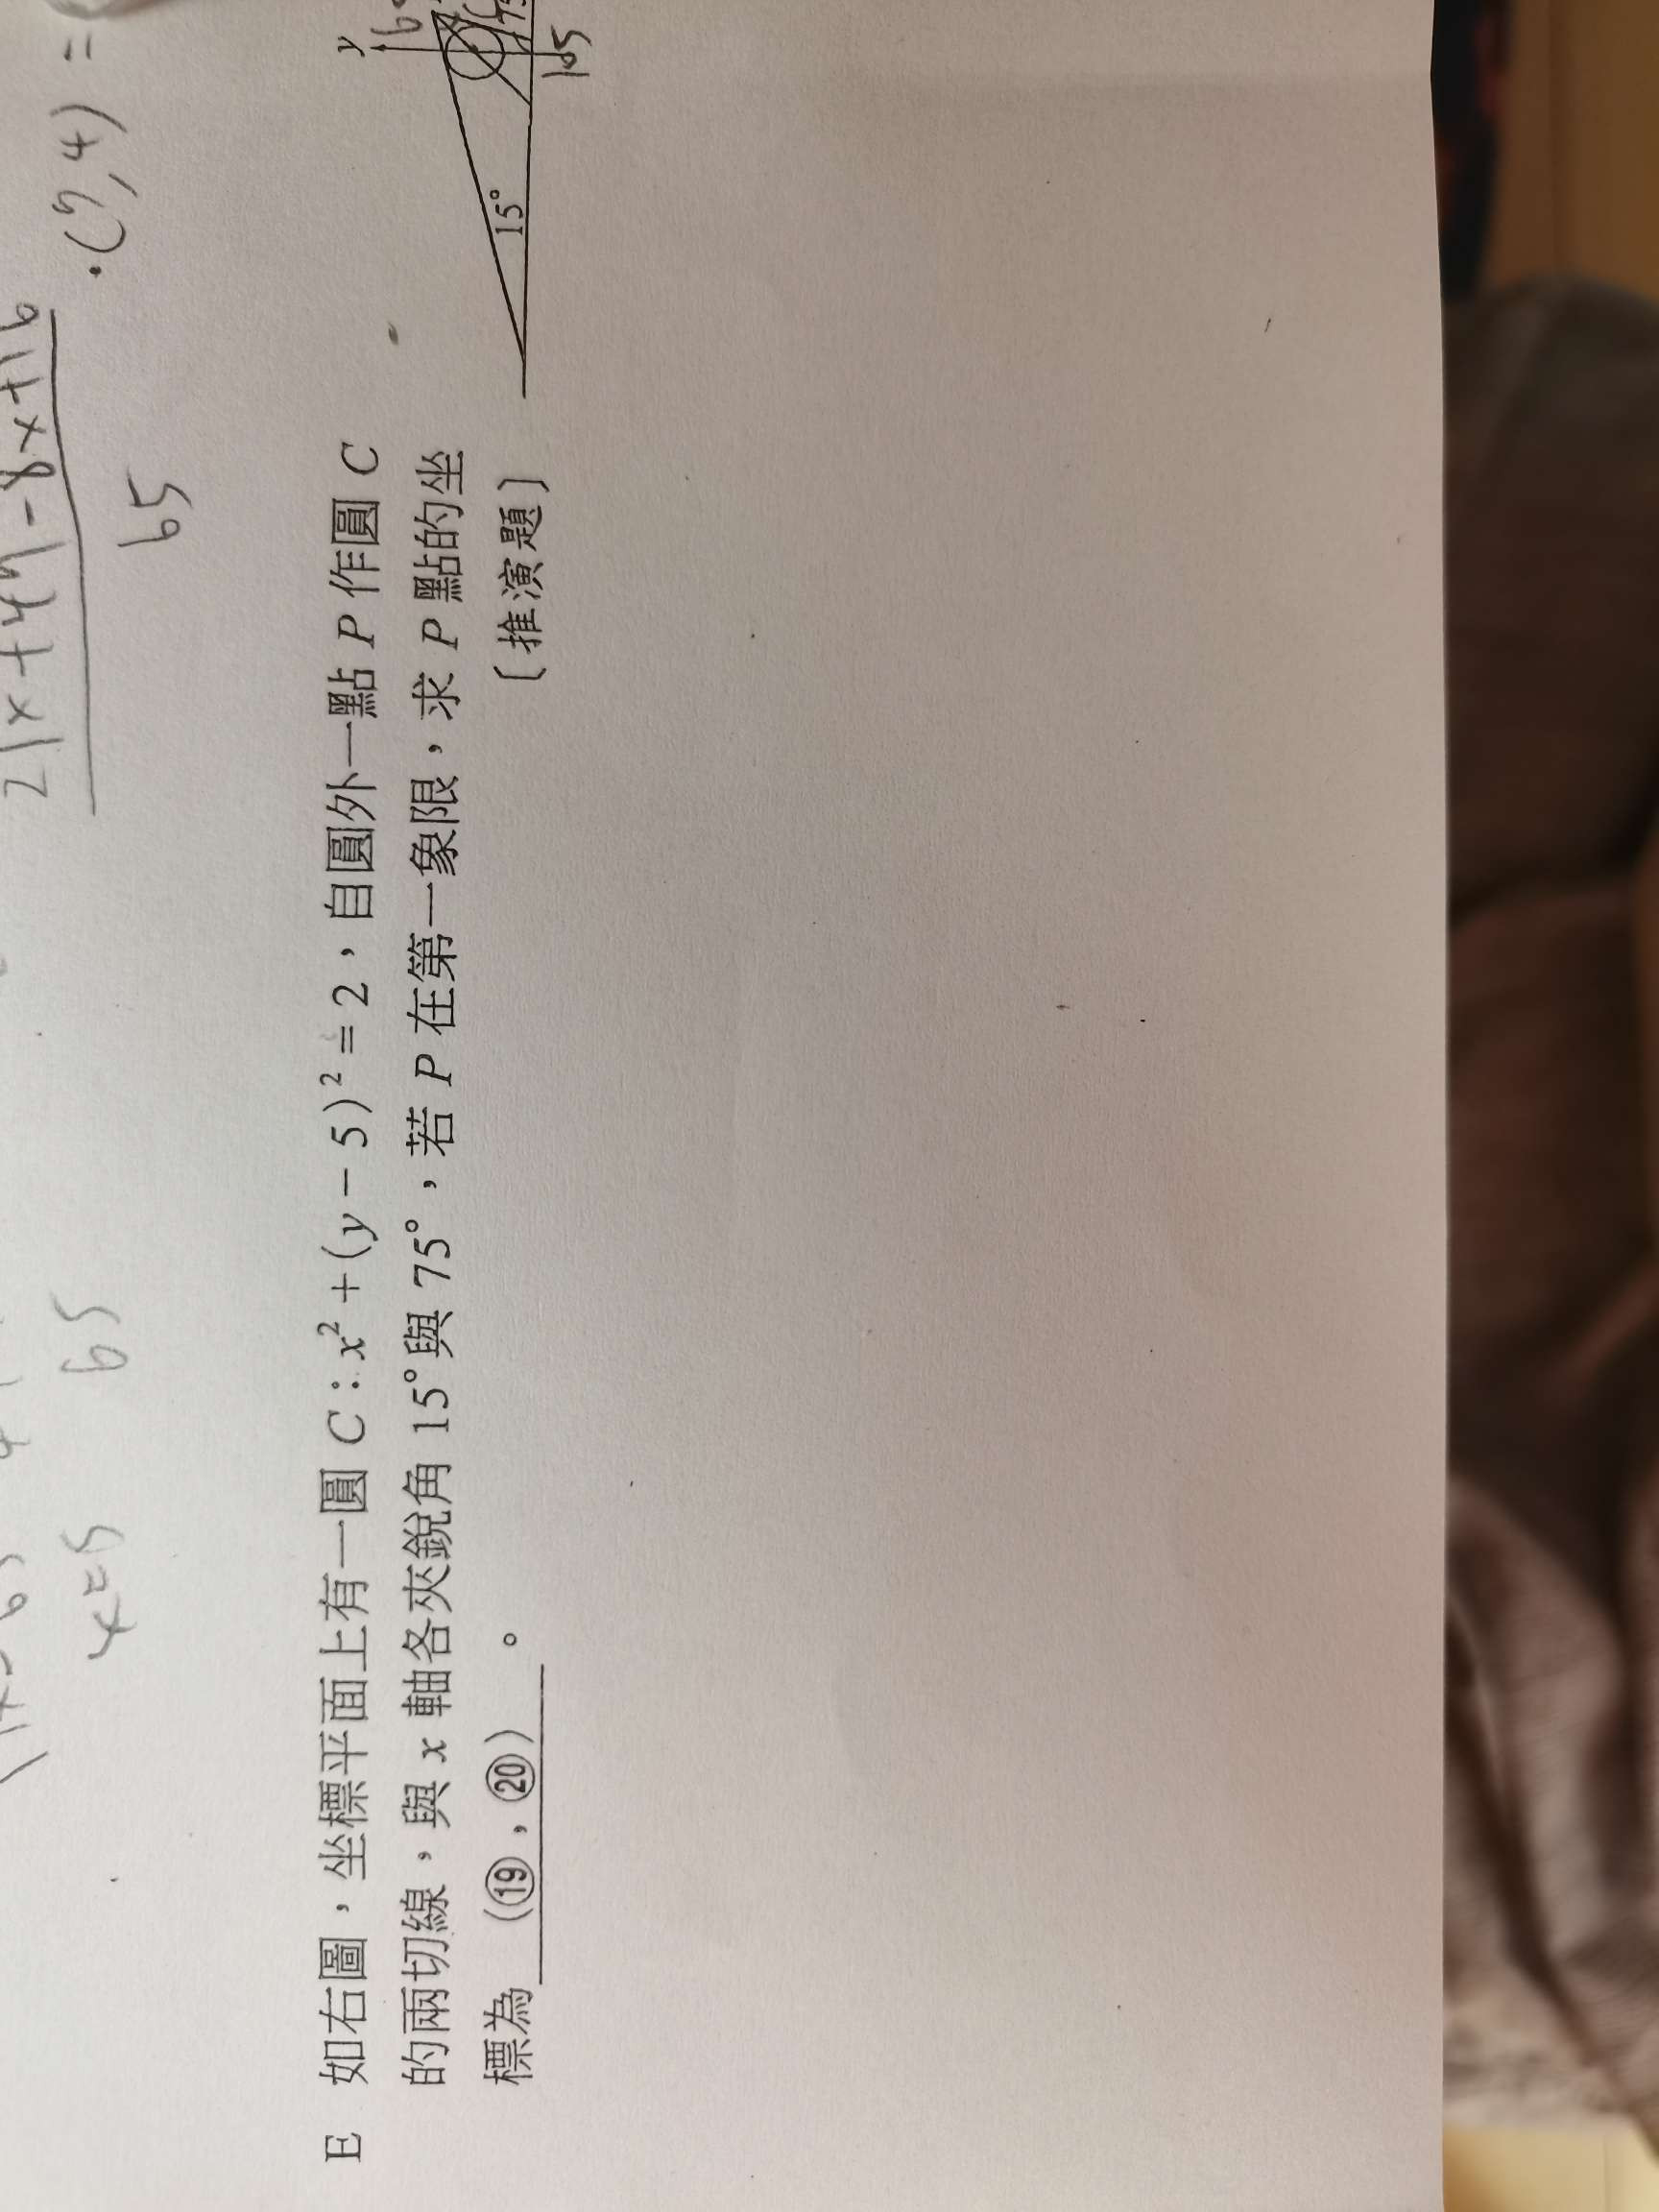 2|x+4y-8x+16
65
·(y,4) =
65
x=5
E 如右圖，坐標平面上有一圓 C：x²+(y-5)²=2，自圓外一點 P 作圓 C
的兩切線，與 x 軸各夾銳角 15°與 75°，若 P 在第一象限，求 P 點的坐
標為 (⑲，⑳) 。 〔推演題〕
y
15°
105